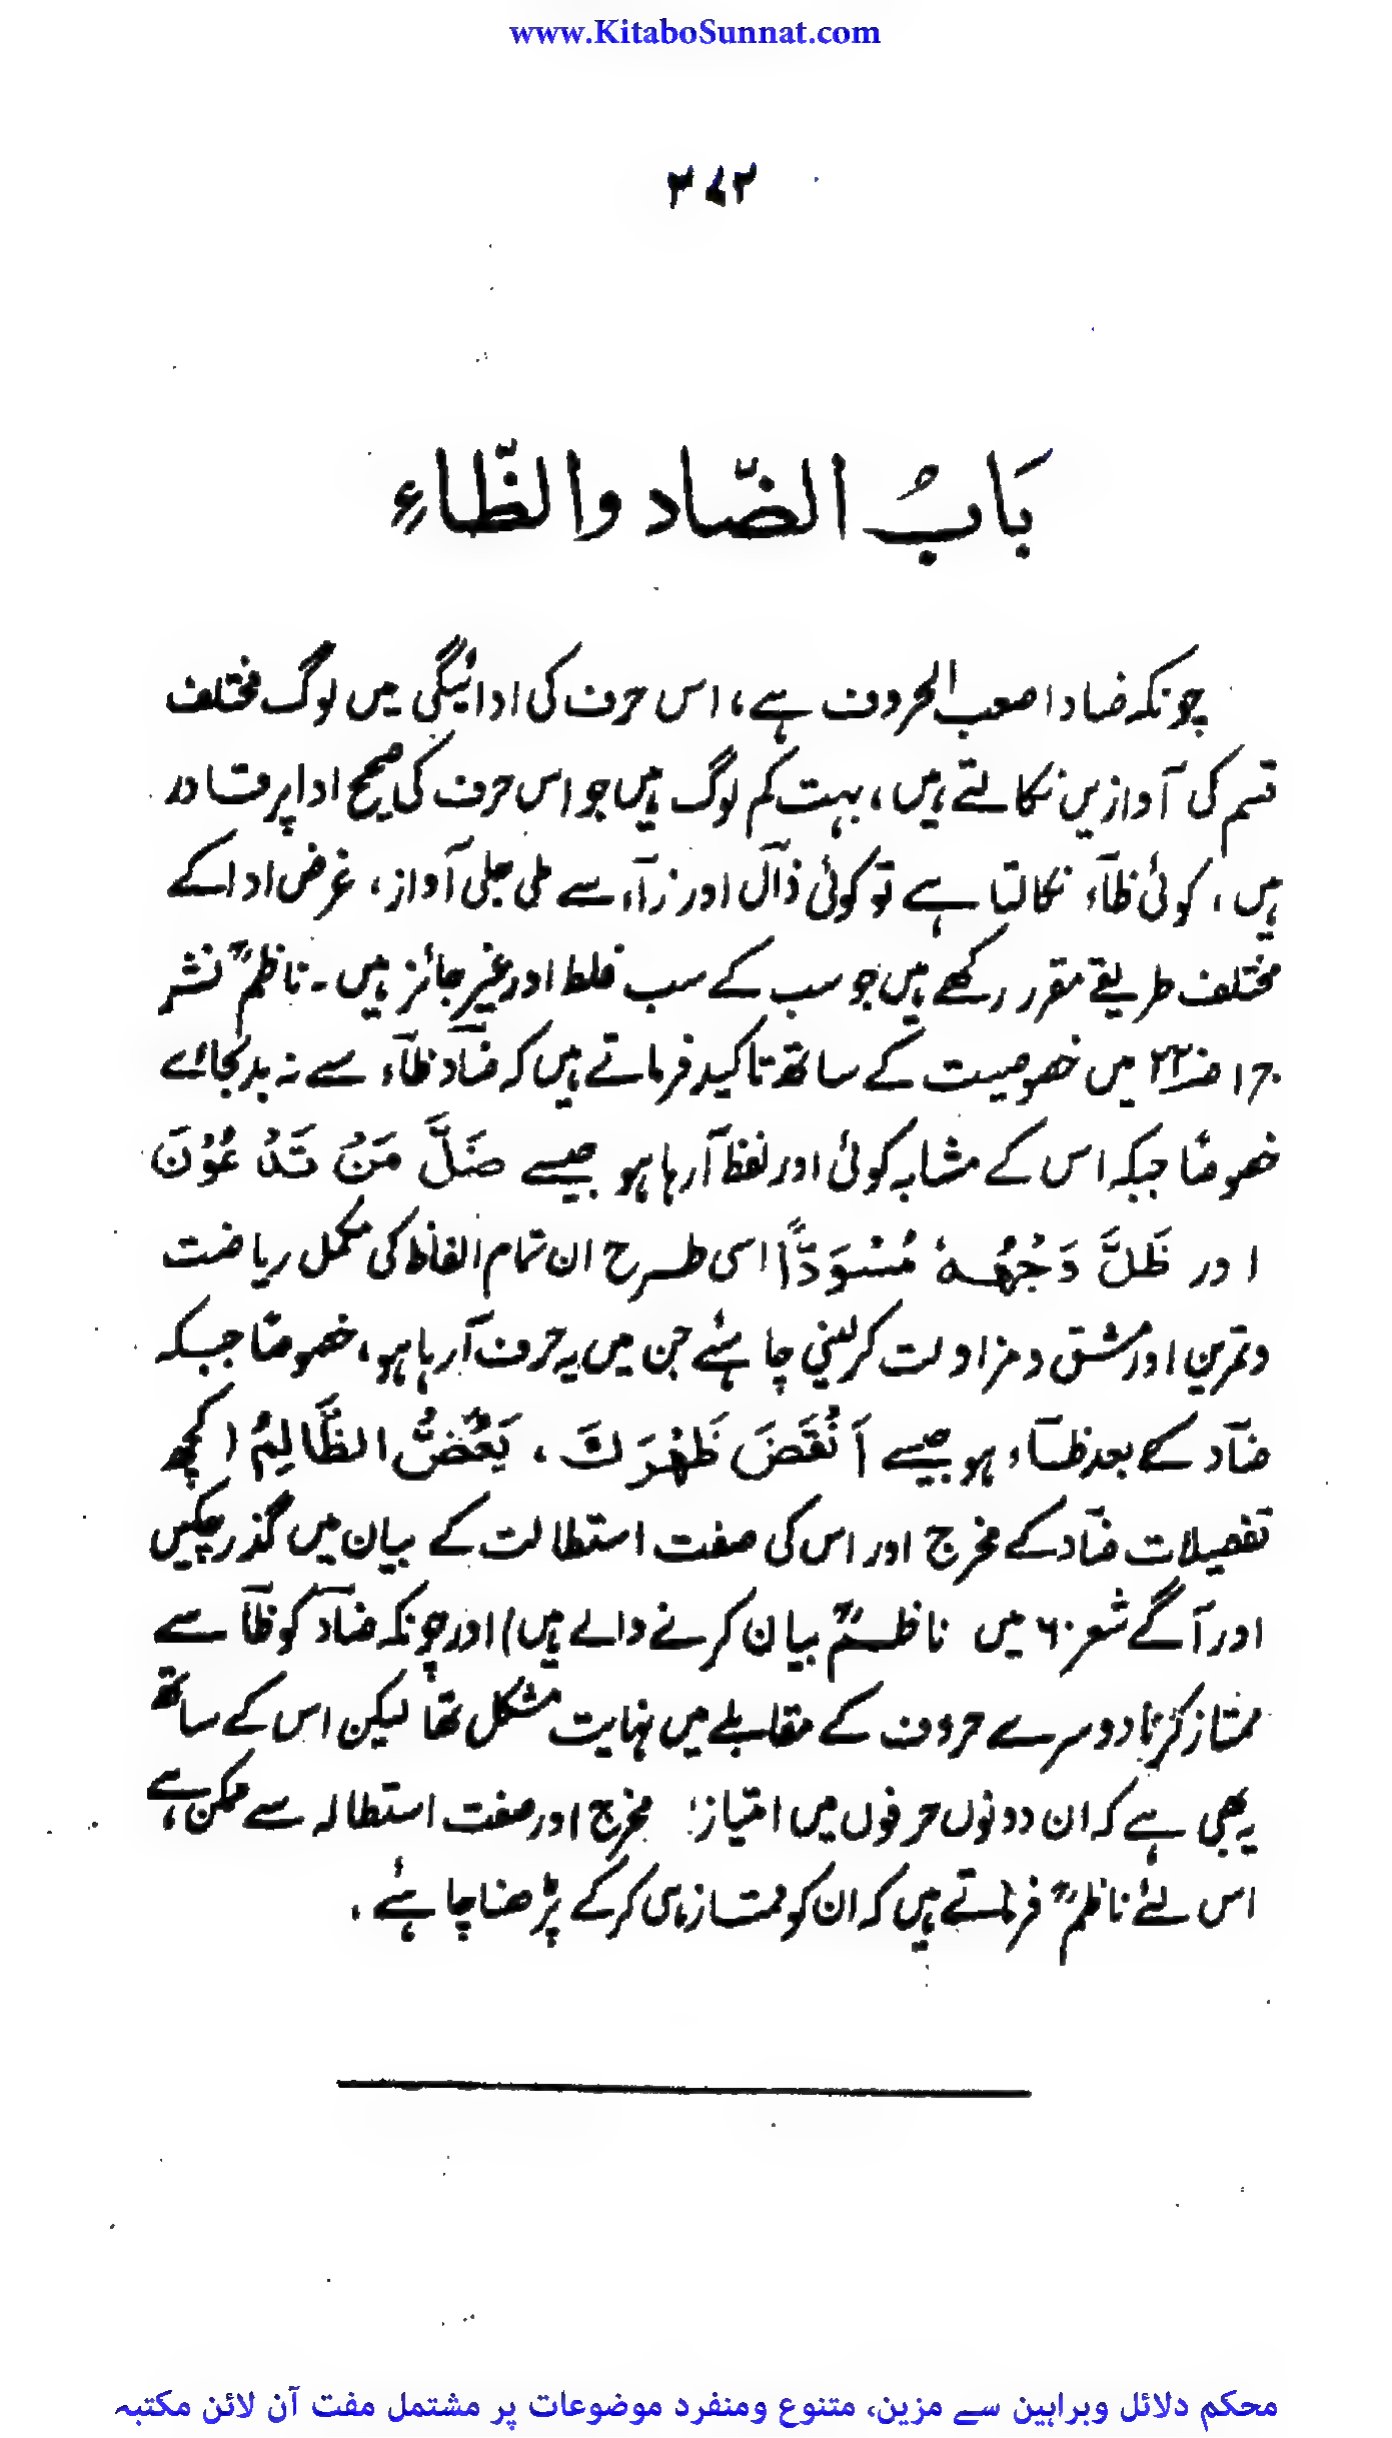 www.KitaboSunnat.com
۳۷۲
بَابُ الضَّاد والظَّاءِ
چونکہ ضاد اصعب الحروف ہے، اس حرف کی ادائیگی میں لوگ مختلف
قسم کی آوازیں نکالتے ہیں، بہت کم لوگ ہیں جو اس حرف کی صحیح ادا پر قادر
ہیں، کوئی ظآء نکالتا ہے تو کوئی ذآل اور زآء سے ملی جلی آواز، غرض ادا کے
مختلف طریقے مقرر رکھے ہیں جو سب کے سب غلط اور غیر جائز ہیں۔ ناظمؒ نشر
ج۱ ص۲۲ میں خصوصیت کے ساتھ تاکید فرماتے ہیں کہ ضآد ظآء سے نہ بدل جائے
خصوصًا جبکہ اس کے مشابہ کوئی اور لفظ آرہا ہو جیسے ضَلَّ مَنْ تَدْعُوْنَ
اور ظَلَّ وَجْهُهٗ مُسْوَدًّا اسی طرح ان تمام الفاظ کی مکمل ریاضت
وتمرین اور مشق و مزاولت کرلینی چاہئے جن میں یہ حرف آرہا ہو، خصوصًا جبکہ
ضآد کے بعد ظآء ہو جیسے اَنْقَضَ ظَهْرَكَ ، يَعَضُّ الظَّالِمُ (کچھ
تفصیلات ضآد کے مخرج اور اس کی صفت استطالت کے بیان میں گذر چکیں
اور آگے شعر ۶۰ میں ناظمؒ بیان کرنے والے ہیں) اور چونکہ ضآد کو ظآ سے
ممتاز کرنا دوسرے حروف کے مقابلے میں نہایت مشکل تھا لیکن اس کے ساتھ
یہ بھی ہے کہ ان دونوں حرفوں میں امتیاز مخرج اور صفت استطالہ سے ممکن ہے
اس لئے ناظمؒ فرماتے ہیں کہ ان کو ممتاز ہی کرکے پڑھنا چاہئے.
محکم دلائل وبراہین سے مزین، متنوع ومنفرد موضوعات پر مشتمل مفت آن لائن مکتبہ